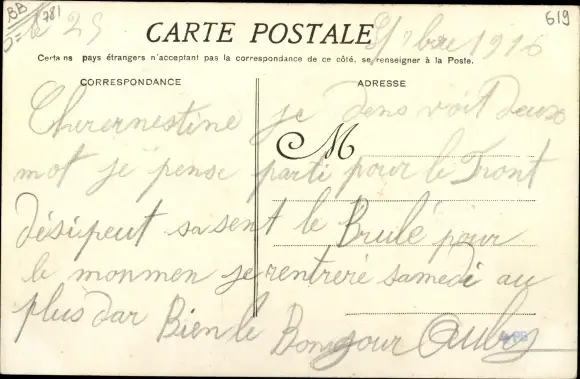 BB
781
619
le 25 7bre 1916
CARTE POSTALE
Certains pays étrangers n'acceptant pas la correspondance de ce côté, se renseigner à la Poste.
CORRESPONDANCE
ADRESSE
M
Cherernestine je dens voit deux
mot je pense parti pour le Front
désipeut sa sent le Brulé pour
le monmen je rentreré samedi au
plus dar Bien le Bonjour